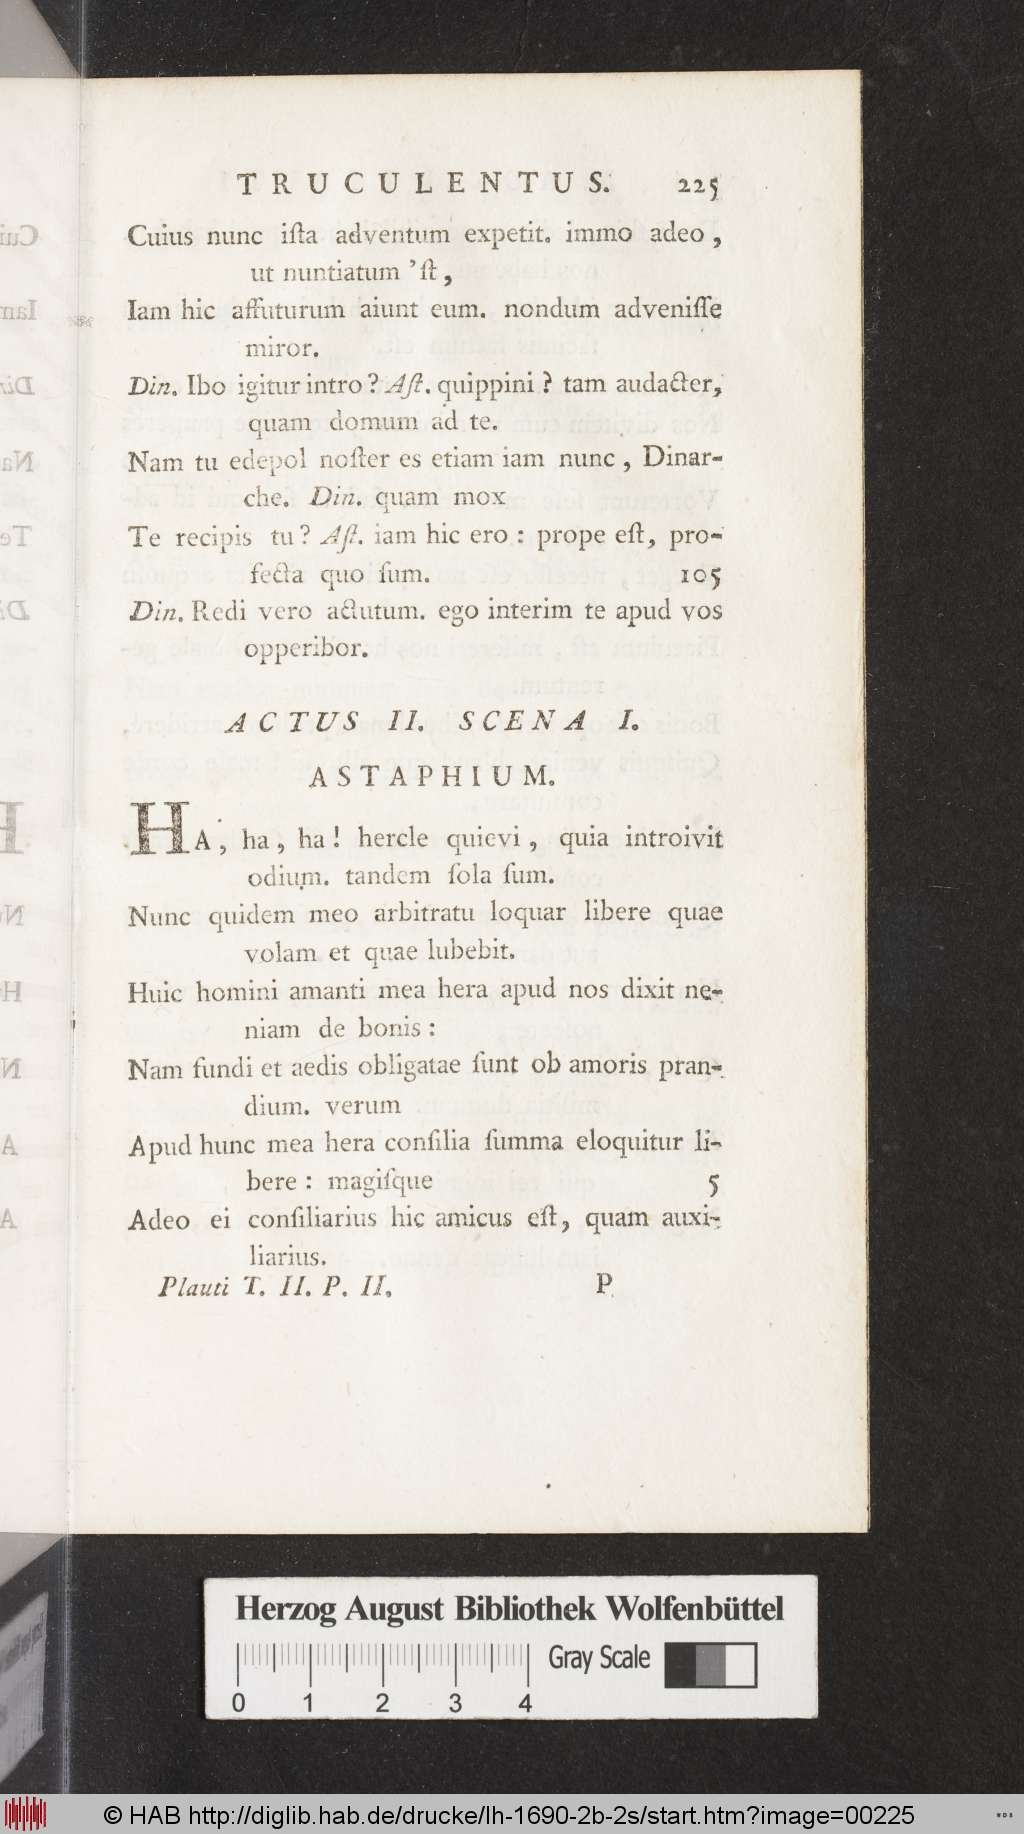 TRUCULENTUS. 225
Cuius nunc iſta adventum expetit. immo adeo,
ut nuntiatum 'ſt,
Iam hic affuturum aiunt eum. nondum adveniſſe
miror.
Din. Ibo igitur intro? Aſt. quippini? tam audacter,
quam domum ad te.
Nam tu edepol noſter es etiam iam nunc, Dinar-
che. Din. quam mox
Te recipis tu? Aſt. iam hic ero: prope eſt, pro-
fecta quo ſum. 105
Din. Redi vero actutum. ego interim te apud vos
opperibor.
ACTUS II. SCENA I.
ASTAPHIUM.
HA, ha, ha! hercle quievi, quia introivit
odium. tandem ſola ſum.
Nunc quidem meo arbitratu loquar libere quae
volam et quae lubebit.
Huic homini amanti mea hera apud nos dixit ne-
niam de bonis:
Nam fundi et aedis obligatae ſunt ob amoris pran-
dium. verum
Apud hunc mea hera conſilia ſumma eloquitur li-
bere: magiſque 5
Adeo ei conſiliarius hic amicus eſt, quam auxi-
liarius.
Plauti T. II. P. II. P
Herzog August Bibliothek Wolfenbüttel
Gray Scale
0 1 2 3 4
© HAB http://diglib.hab.de/drucke/lh-1690-2b-2s/start.htm?image=00225